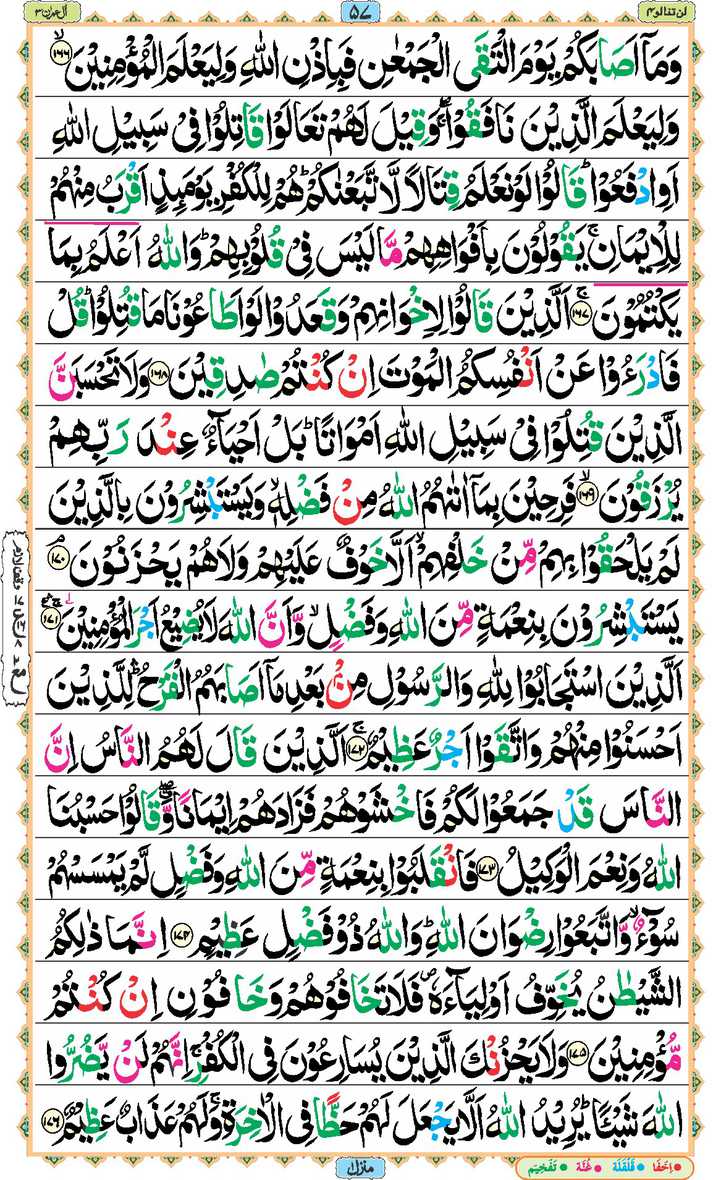 لن تنالوا ۴ ۵۷ اٰل عمرٰن ۳
وَمَاۤ اَصَابَكُمۡ يَوۡمَ الۡتَقَى الۡجَمۡعٰنِ فَبِاِذۡنِ اللّٰهِ وَلِيَعۡلَمَ الۡمُؤۡمِنِيۡنَۙ‏ ﴿۱۶۶﴾
وَلِيَعۡلَمَ الَّذِيۡنَ نَافَقُوۡا ۖۚ وَقِيۡلَ لَهُمۡ تَعَالَوۡا قَاتِلُوۡا فِىۡ سَبِيۡلِ اللّٰهِ
اَوِ ادۡفَعُوۡا ‌ؕ قَالُوۡا لَوۡ نَعۡلَمُ قِتَالًا لَّا تَّبَعۡنٰكُمۡ‌ؕ هُمۡ لِلۡكُفۡرِ يَوۡمَئِذٍ اَقۡرَبُ مِنۡهُمۡ
لِلۡاِيۡمَانِ‌ۚ يَقُوۡلُوۡنَ بِاَفۡوَاهِهِمۡ مَّا لَيۡسَ فِىۡ قُلُوۡبِهِمۡ‌ؕ وَاللّٰهُ اَعۡلَمُ بِمَا
يَكۡتُمُوۡنَ‌ۚ‏ ﴿۱۶۷﴾ اَلَّذِيۡنَ قَالُوۡا لِاِخۡوَانِهِمۡ وَقَعَدُوۡا لَوۡ اَطَاعُوۡنَا مَا قُتِلُوۡا ‌ؕ قُلۡ
فَادۡرَءُوۡا عَنۡ اَنۡفُسِكُمُ الۡمَوۡتَ اِنۡ كُنۡتُمۡ صٰدِقِيۡنَ‏ ﴿۱۶۸﴾ وَلَا تَحۡسَبَنَّ
الَّذِيۡنَ قُتِلُوۡا فِىۡ سَبِيۡلِ اللّٰهِ اَمۡوَاتًا ‌ؕ بَلۡ اَحۡيَآءٌ عِنۡدَ رَبِّهِمۡ
يُرۡزَقُوۡنَۙ‏ ﴿۱۶۹﴾ فَرِحِيۡنَ بِمَاۤ اٰتٰٮهُمُ اللّٰهُ مِنۡ فَضۡلِهٖۙ وَيَسۡتَبۡشِرُوۡنَ بِالَّذِيۡنَ
لَمۡ يَلۡحَقُوۡا بِهِمۡ مِّنۡ خَلۡفِهِمۡۙ اَلَّا خَوۡفٌ عَلَيۡهِمۡ وَلَا هُمۡ يَحۡزَنُوۡنَ‌ۘ‏ ﴿۱۷۰﴾
يَسۡتَبۡشِرُوۡنَ بِنِعۡمَةٍ مِّنَ اللّٰهِ وَفَضۡلٍۙ وَّاَنَّ اللّٰهَ لَا يُضِيۡعُ اَجۡرَ الۡمُؤۡمِنِيۡنَ ۛۚ ‏ ﴿۱۷۱﴾
اَلَّذِيۡنَ اسۡتَجَابُوۡا لِلّٰهِ وَالرَّسُوۡلِ مِنۡۢ بَعۡدِ مَاۤ اَصَابَهُمُ الۡقَرۡحُ ‌ۛؕ لِلَّذِيۡنَ
اَحۡسَنُوۡا مِنۡهُمۡ وَاتَّقَوۡا اَجۡرٌ عَظِيۡمٌ‌ۚ‏ ﴿۱۷۲﴾ اَلَّذِيۡنَ قَالَ لَهُمُ النَّاسُ اِنَّ
النَّاسَ قَدۡ جَمَعُوۡا لَكُمۡ فَاخۡشَوۡهُمۡ فَزَادَهُمۡ اِيۡمَانًا ۖ وَّقَالُوۡا حَسۡبُنَا
اللّٰهُ وَنِعۡمَ الۡوَكِيۡلُ‏ ﴿۱۷۳﴾ فَانۡقَلَبُوۡا بِنِعۡمَةٍ مِّنَ اللّٰهِ وَفَضۡلٍ لَّمۡ يَمۡسَسۡهُمۡ
سُوۡٓءٌ ۙ وَّاتَّبَعُوۡا رِضۡوَانَ اللّٰهِ ‌ؕ وَاللّٰهُ ذُوۡ فَضۡلٍ عَظِيۡمٍ‏ ﴿۱۷۴﴾ اِنَّمَا ذٰلِكُمُ
الشَّيۡطٰنُ يُخَوِّفُ اَوۡلِيَآءَهٗ فَلَا تَخَافُوۡهُمۡ وَخَافُوۡنِ اِنۡ كُنۡتُمۡ
مُّؤۡمِنِيۡنَ‏ ﴿۱۷۵﴾ وَلَا يَحۡزُنۡكَ الَّذِيۡنَ يُسَارِعُوۡنَ فِى الۡكُفۡرِ‌ۚ اِنَّهُمۡ لَنۡ يَّضُرُّوا
اللّٰهَ شَيۡـــًٔا ‌ؕ يُرِيۡدُ اللّٰهُ اَلَّا يَجۡعَلَ لَهُمۡ حَظًّا فِىۡ الۡاٰخِرَةِ ‌ۚ وَلَهُمۡ عَذَابٌ عَظِيۡمٌ‌ۚ‏ ﴿۱۷۶﴾
منزل ۱
اِخفَا قَلقَلَة غُنَّة تَفخِيم